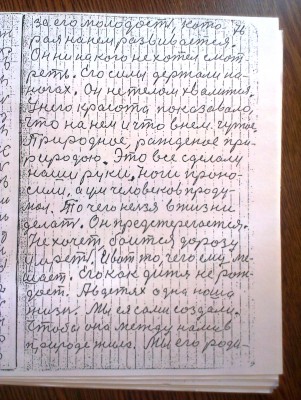 за его молодость, кото
рая на нем развивается.
Он ни на кого не хотел смот
реть. Его силы держали на
ногах. Он не телом хвалится.
У него красота показавало,
что на нем и что в нем. Чутое,
Природное, рожденое при
природою. Это все сделали
наши руки. Ноги прино
сили, а ум человеков проду
мал. То чего нельзя в жизни
делать. Он предстерегается.
Не хочет, боится дорогу
умереть. И вот то, чего ему ме
шает. Его как дитя не рож
дает. А в детях одна наша
жизнь. Мы ея сами создали.
Чтобы она между нами в
природе жила. Мы его роди-